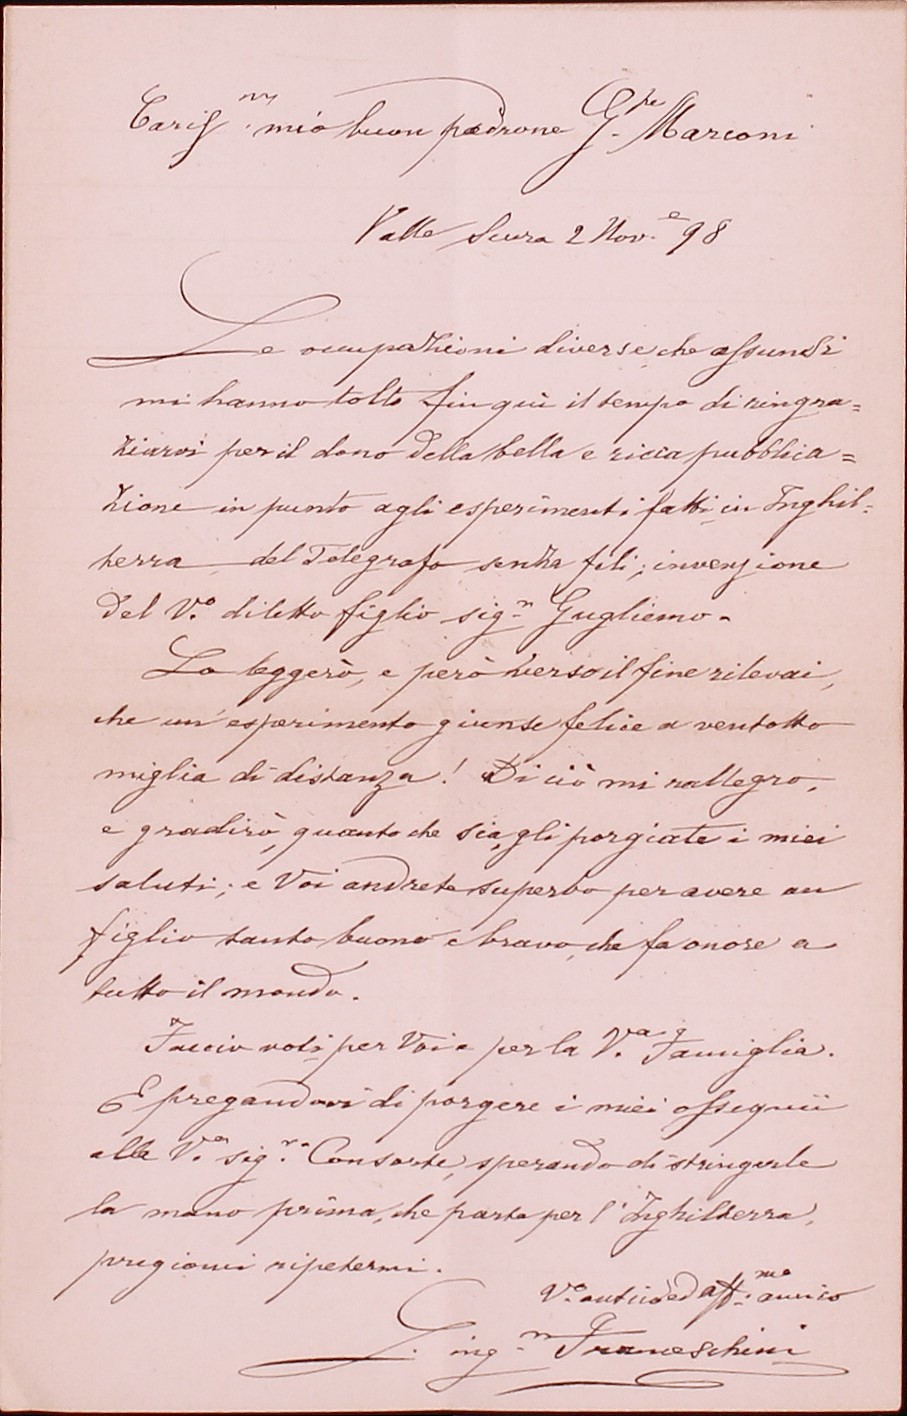 Carisᵐᵒ mio buon padrone G.ᵖᵉ Marconi
Valle Scura 2 Nov.ᵉ 98
Le occupazioni diverse, che assunsi
mi hanno tolto fin quì il tempo di ringra=
ziarvi per il dono della bella e ricca pubblica=
zione in punto agli esperimenti fatti in Inghil=
terra del Telegrafo senza fili; invenzione
del V.º diletto figlio sig.ʳ Gugliemo.
La leggerò, e però verso il fine rilevai,
che un'esperimento giunse felice a ventotto
miglia di distanza! Di ciò mi rallegro,
e gradirò, quanto che sia, gli porgiate i miei
saluti; e Voi andrete superbo per avere un
figlio tanto buono e bravo, che fa onore a
tutto il mondo.
Faccio voti per Voi e per la V.ª Famiglia.
E pregandovi di porgere i miei ossequii
alla V.ª sig.ʳª Consorte, sperando di stringerle
la mano prima, che parta per l'Inghilterra,
pregiomi ripetermi.
V.º antico ed aff.ᵐᵒ amico
L. ing.ʳ Franceschini